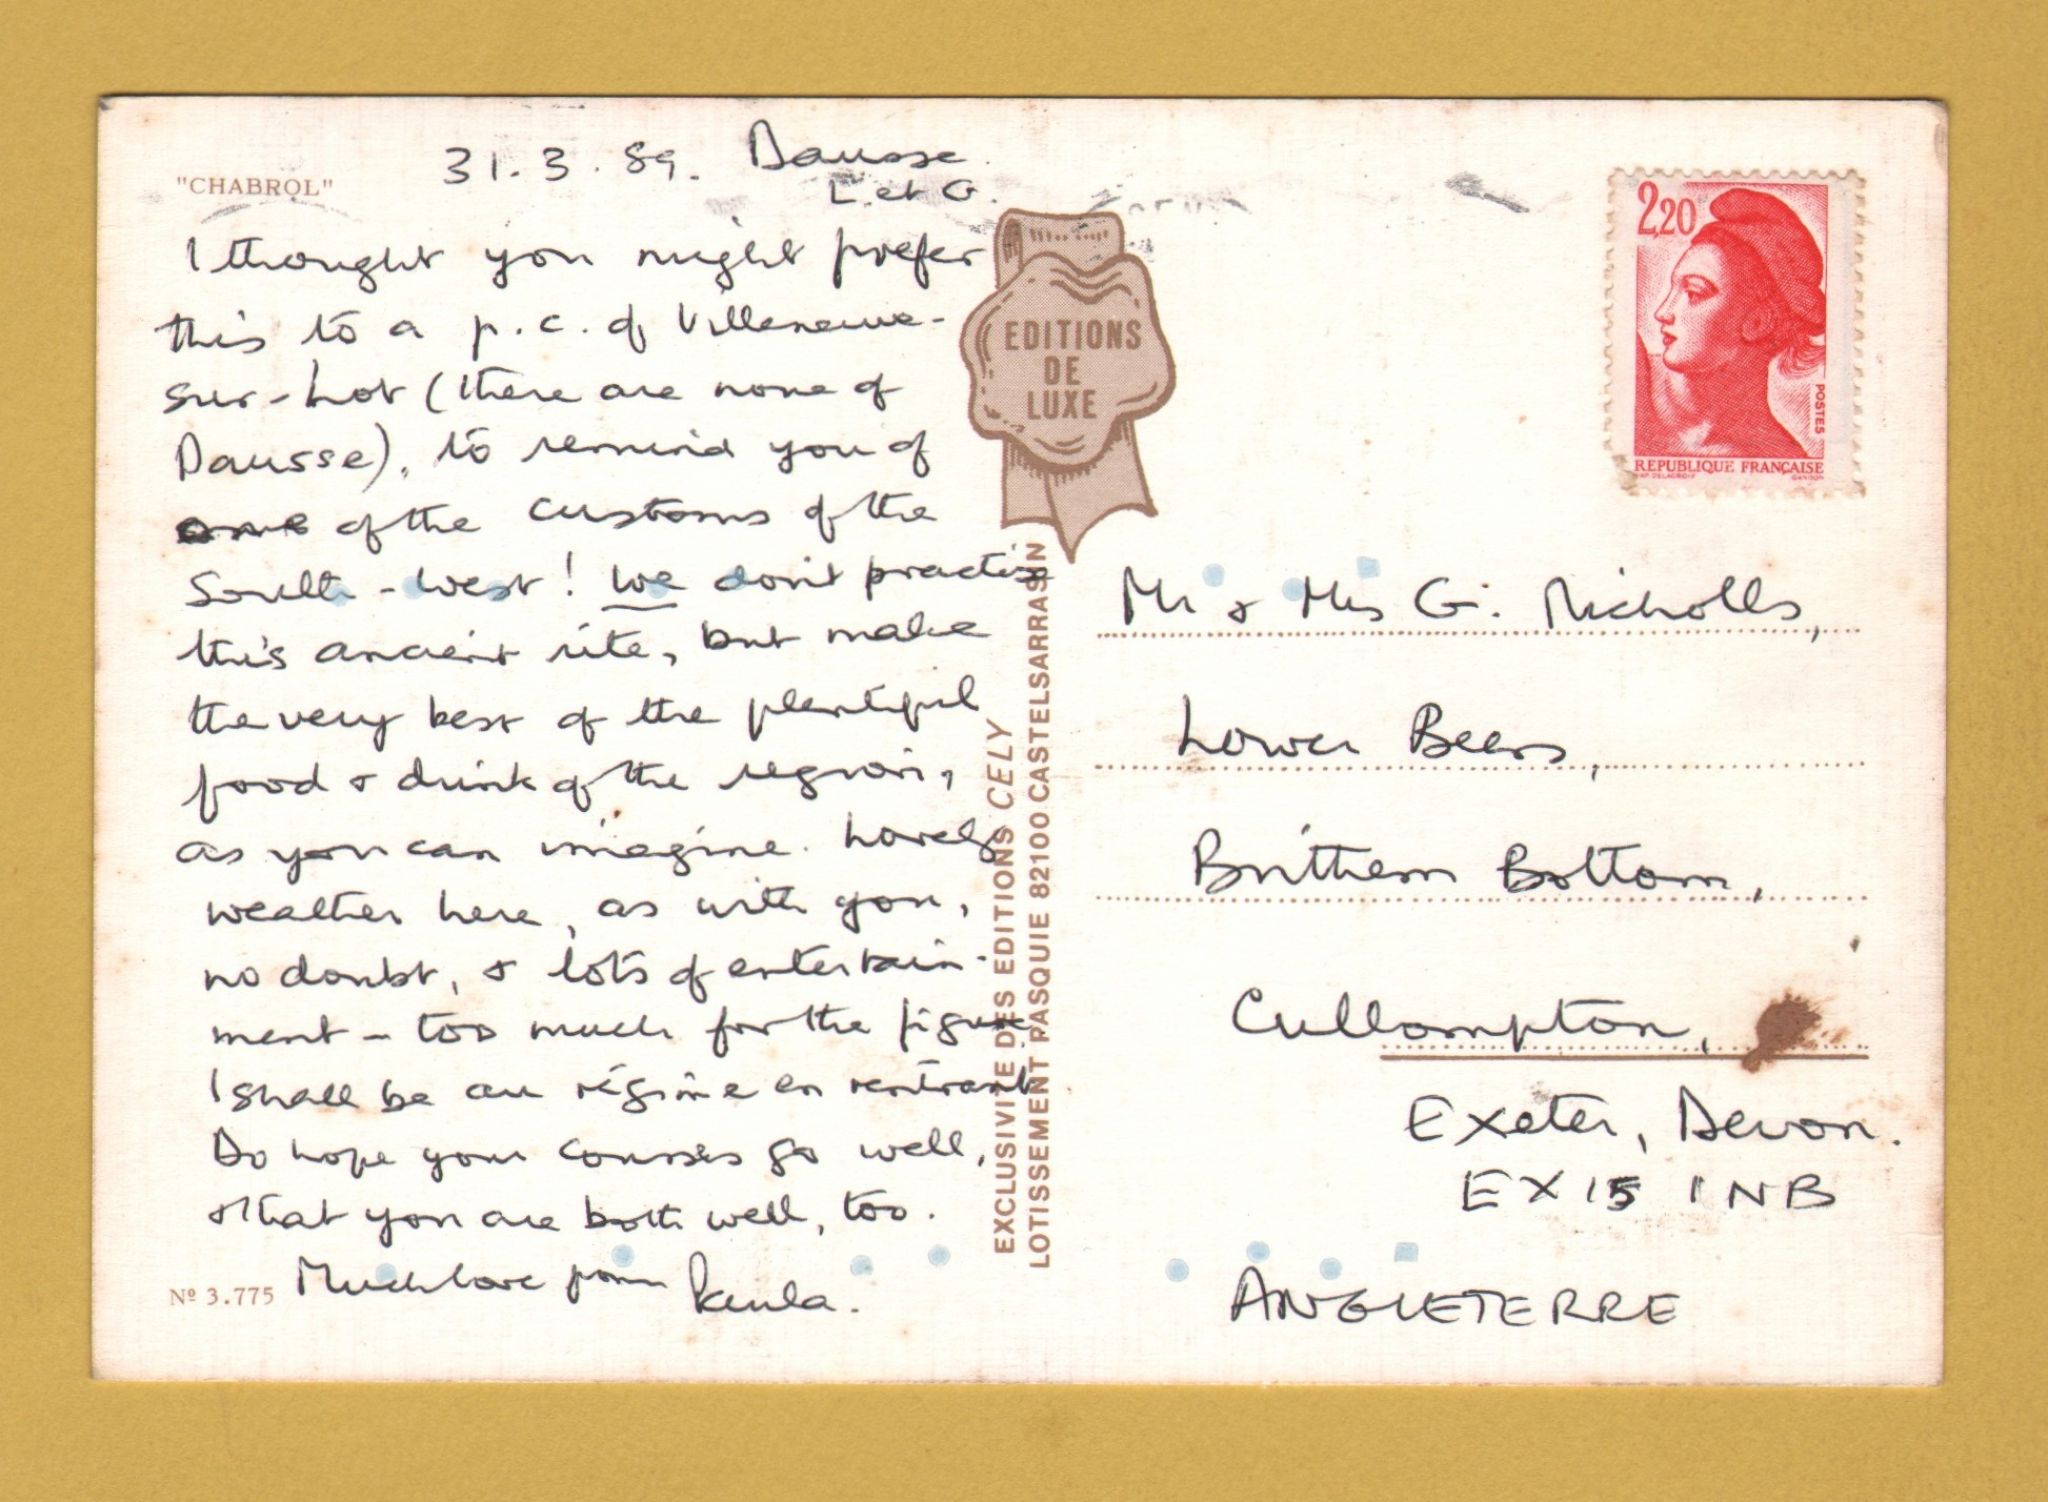 "CHABROL"
31.3.89. Dausse
L. et G.
I thought you might prefer
this to a p.c. of Villeneuve-
sur-Lot (there are none of
Dausse), to remind you of
one of the customs of the
South-West! We don't practise
this ancient rite, but make
the very best of the plentiful
food & drink of the region,
as you can imagine. Lovely
weather here, as with you,
no doubt, & lots of entertain-
ment - too much for the figure
I shall be au régime en rentrant
Do hope your courses go well,
& that you are both well, too.
Much love from Paula.
Nº 3.775
EDITIONS
DE
LUXE
EXCLUSIVITE DES EDITIONS CELY
LOTISSEMENT PASQUIE 82100 CASTELSARRASIN
2,20
POSTES
REPUBLIQUE FRANÇAISE
D'AP. DELACROIX GANDON
Mr & Mrs G. Nicholls,
Lower Beers,
Brithem Bottom,
Cullompton,
Exeter, Devon.
EX15 1NB
ANGLETERRE